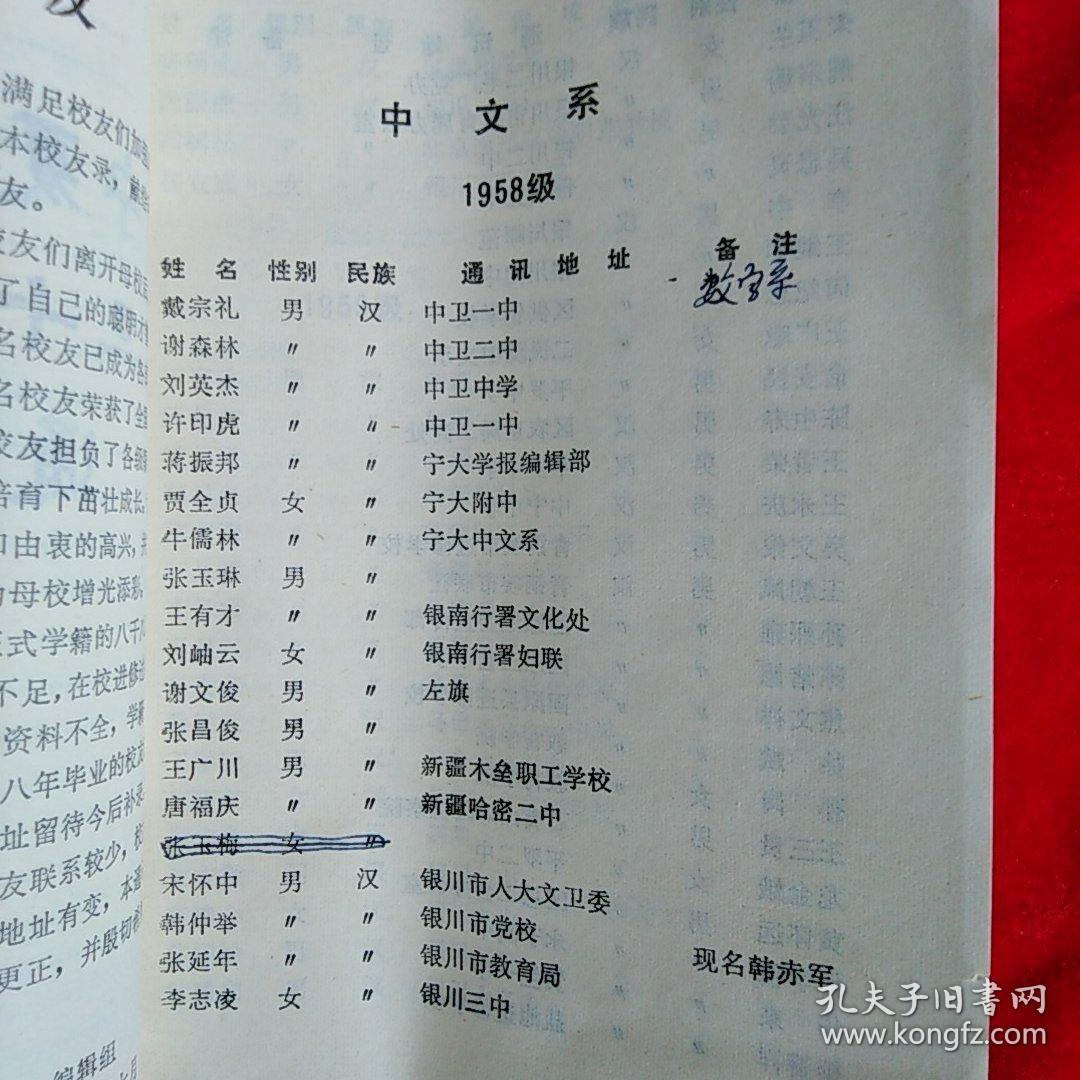 友
满足校友们加强
本校友录,
友。
校友们离开母校
了自己的聪明才智
名校友已成为各
名校友荣获了全
校友担负了各级
培育下茁壮成长
由衷的高兴,
母校增光添彩
正式学籍的八千
不足,在校进修
资料不全,学
八年毕业的校友
址留待今后补
友联系较少,
地址有变,本
更正,并殷切
编辑组
中文系
1958级
姓名 性别 民族 通讯地址 备注
戴宗礼 男 汉 中卫一中 数学系
谢森林 〃 〃 中卫二中
刘英杰 〃 〃 中卫中学
许印虎 〃 〃 中卫一中
蒋振邦 〃 〃 宁大学报编辑部
贾全贞 女 〃 宁大附中
牛儒林 〃 〃 宁大中文系
张玉琳 男 〃
王有才 〃 〃 银南行署文化处
刘岫云 女 〃 银南行署妇联
谢文俊 男 〃 左旗
张昌俊 男 〃
王广川 男 〃 新疆木垒职工学校
唐福庆 〃 〃 新疆哈密二中
张玉梅 女 〃
宋怀中 男 汉 银川市人大文卫委
韩仲举 〃 〃 银川市党校
张延年 〃 〃 银川市教育局 现名韩赤军
李志凌 女 〃 银川三中
孔夫子旧书网
www.kongfz.com